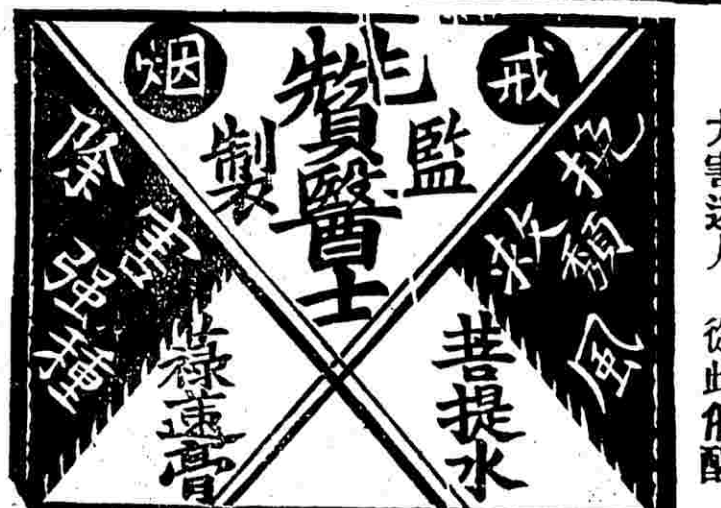 戒烟
贊醫士
監製
挽救頽風
除害强種
菩提水
膏